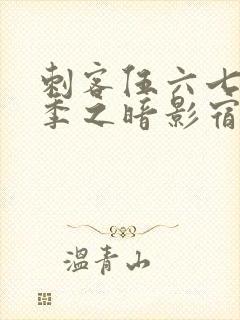 刺客伍六七
季之暗影宿
温青山